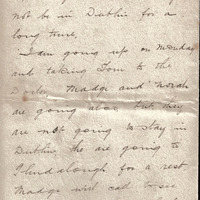 not be in Dublin for a
long time,
I am going up on Monday
and taking Tom to the
Doctor Madge and Norah
are going also but they
are not going to stay in
Dublin the are going to
for a rest
Madge will call to see